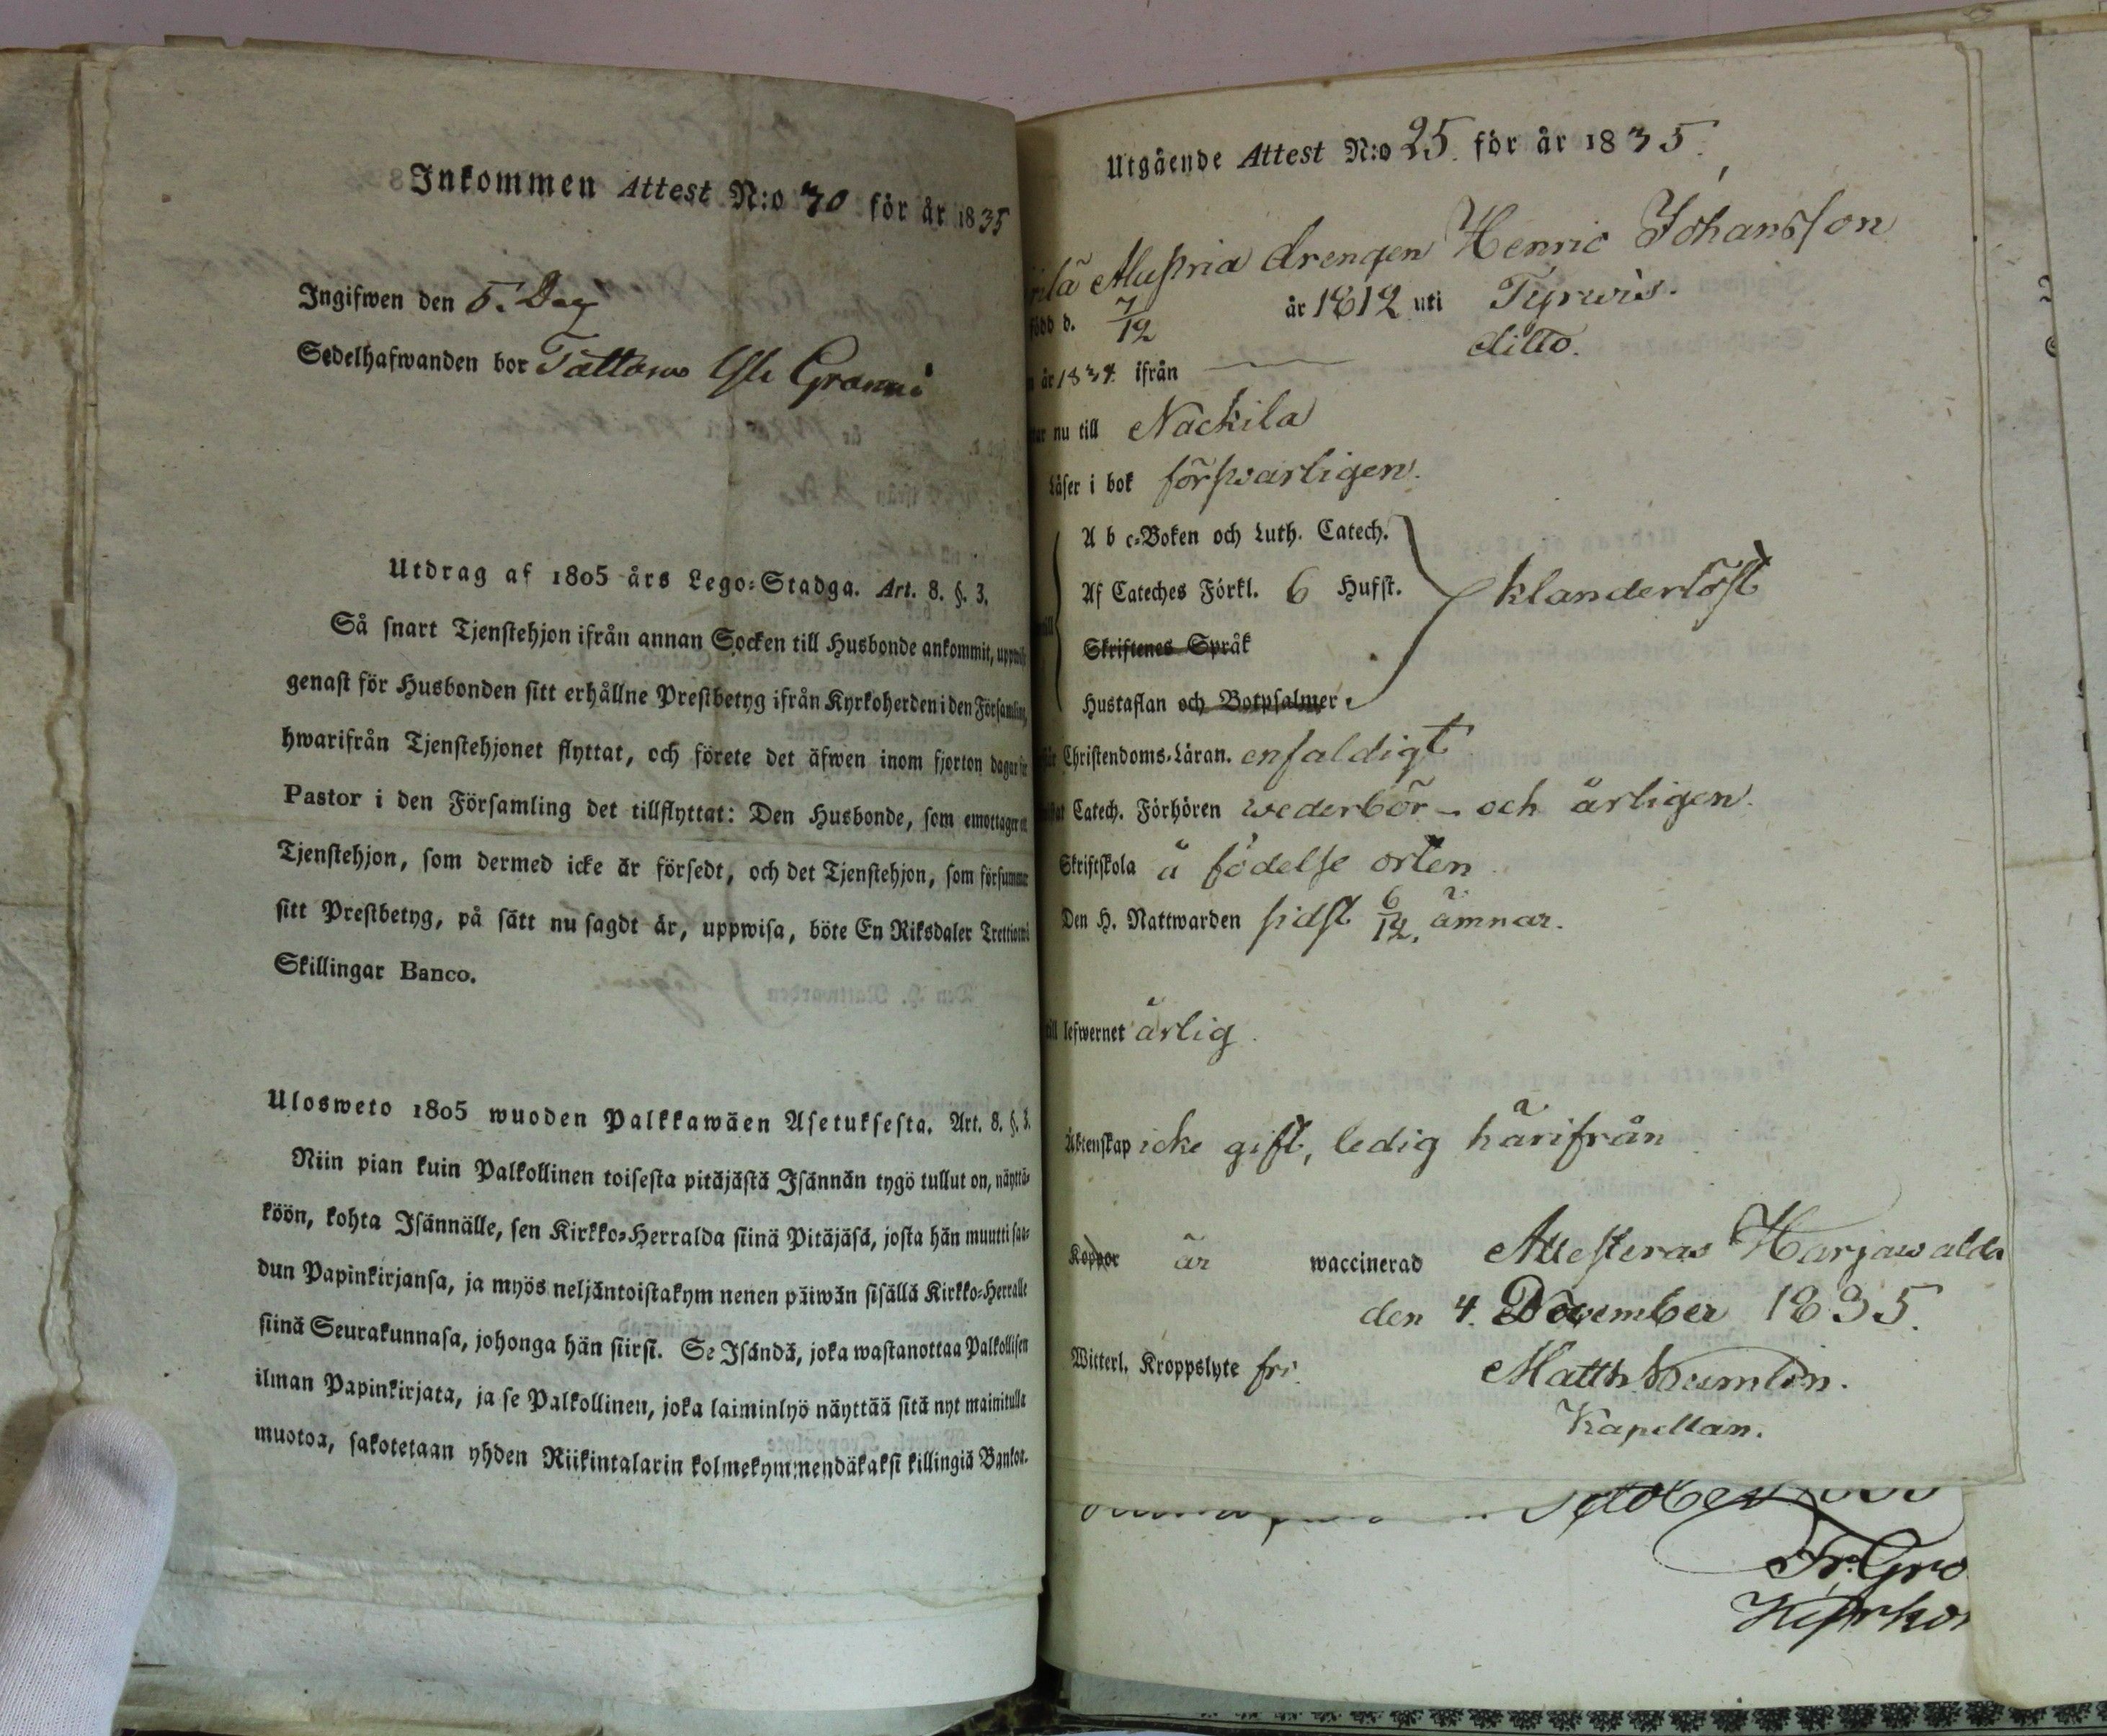 Inkommen Attest N:o 30 för år 1835
Ingifwen den 5. Dec
Sedelhafwanden bor Tattara
Utdrag af 1805 års Lego-Stadga. Art. 8. §. 3.
Så snart Tjenstehjon ifrån annan Socken till Husbonde ankommit,
genast för Husbonden sitt erhållne Prestbetyg ifrån Kyrkoherden i den Församling,
hwarifrån Tjenstehjonet flyttat, och förete det äfwen inom fjorton dagar för
Pastor i den Församling det tillflyttat: Den Husbonde, som emottager
Tjenstehjon, som dermed icke är försedt, och det Tjenstehjon, som försummar
sitt Prestbetyg, på sätt nu sagdt är, uppwisa, böte En Riksdaler
Skillingar Banco.
Ulosweto 1805 wuoden Palkkawäen Asetuksesta. Art. 8. §. 3.
Niin pian kuin Palkollinen toisesta pitäjästä Isännän tygö tullut on, näyttä-
köön, kohta Isännälle, sen Kirkko-Herralda siinä Pitäjäsä, josta hän muutti saa-
dun Papinkirjansa, ja myös neljäntoistakym nenen päiwän sisällä Kirkko-Herralle
siinä Seurakunnasa, johonga hän siirsi. Se Isändä, joka wastanottaa Palkollisen
ilman Papinkirjata, ja se Palkollinen, joka laiminlyö näyttää sitä nyt mainitulla
muotoa, sakotetaan yhden Riikintalarin kolmekymmendäkaksi killingiä Bankoa.
Utgående Attest N:o 25. för år 1835.
drengen Henric Johansson
född d. 7/12 år 1812 uti Tyrwis.
ditto.
år 1834 ifrån
nu till Nackila
Läser i bok förswarligen.
A b c-Boken och Luth. Catech.
Af Cateches Förkl. 6 Hufst. klanderlöst
Skriftenes Språk
Hustaflan och Botpsalmer
Christendoms-Läran. enfaldigt
Catech. Förhören wederbör- och ärligen.
Skriftskola å födelse orten
Den H. Nattwarden sidst 6/12, ämnar.
lefwernet ärlig.
Äktenskap icke gift, ledig härifrån
Koppor är waccinerad Attesteras Harjawalda
den 4. December 1835.
Witterl. Kroppslyte fri.
Matth
Kapellan.
Fr. Gro